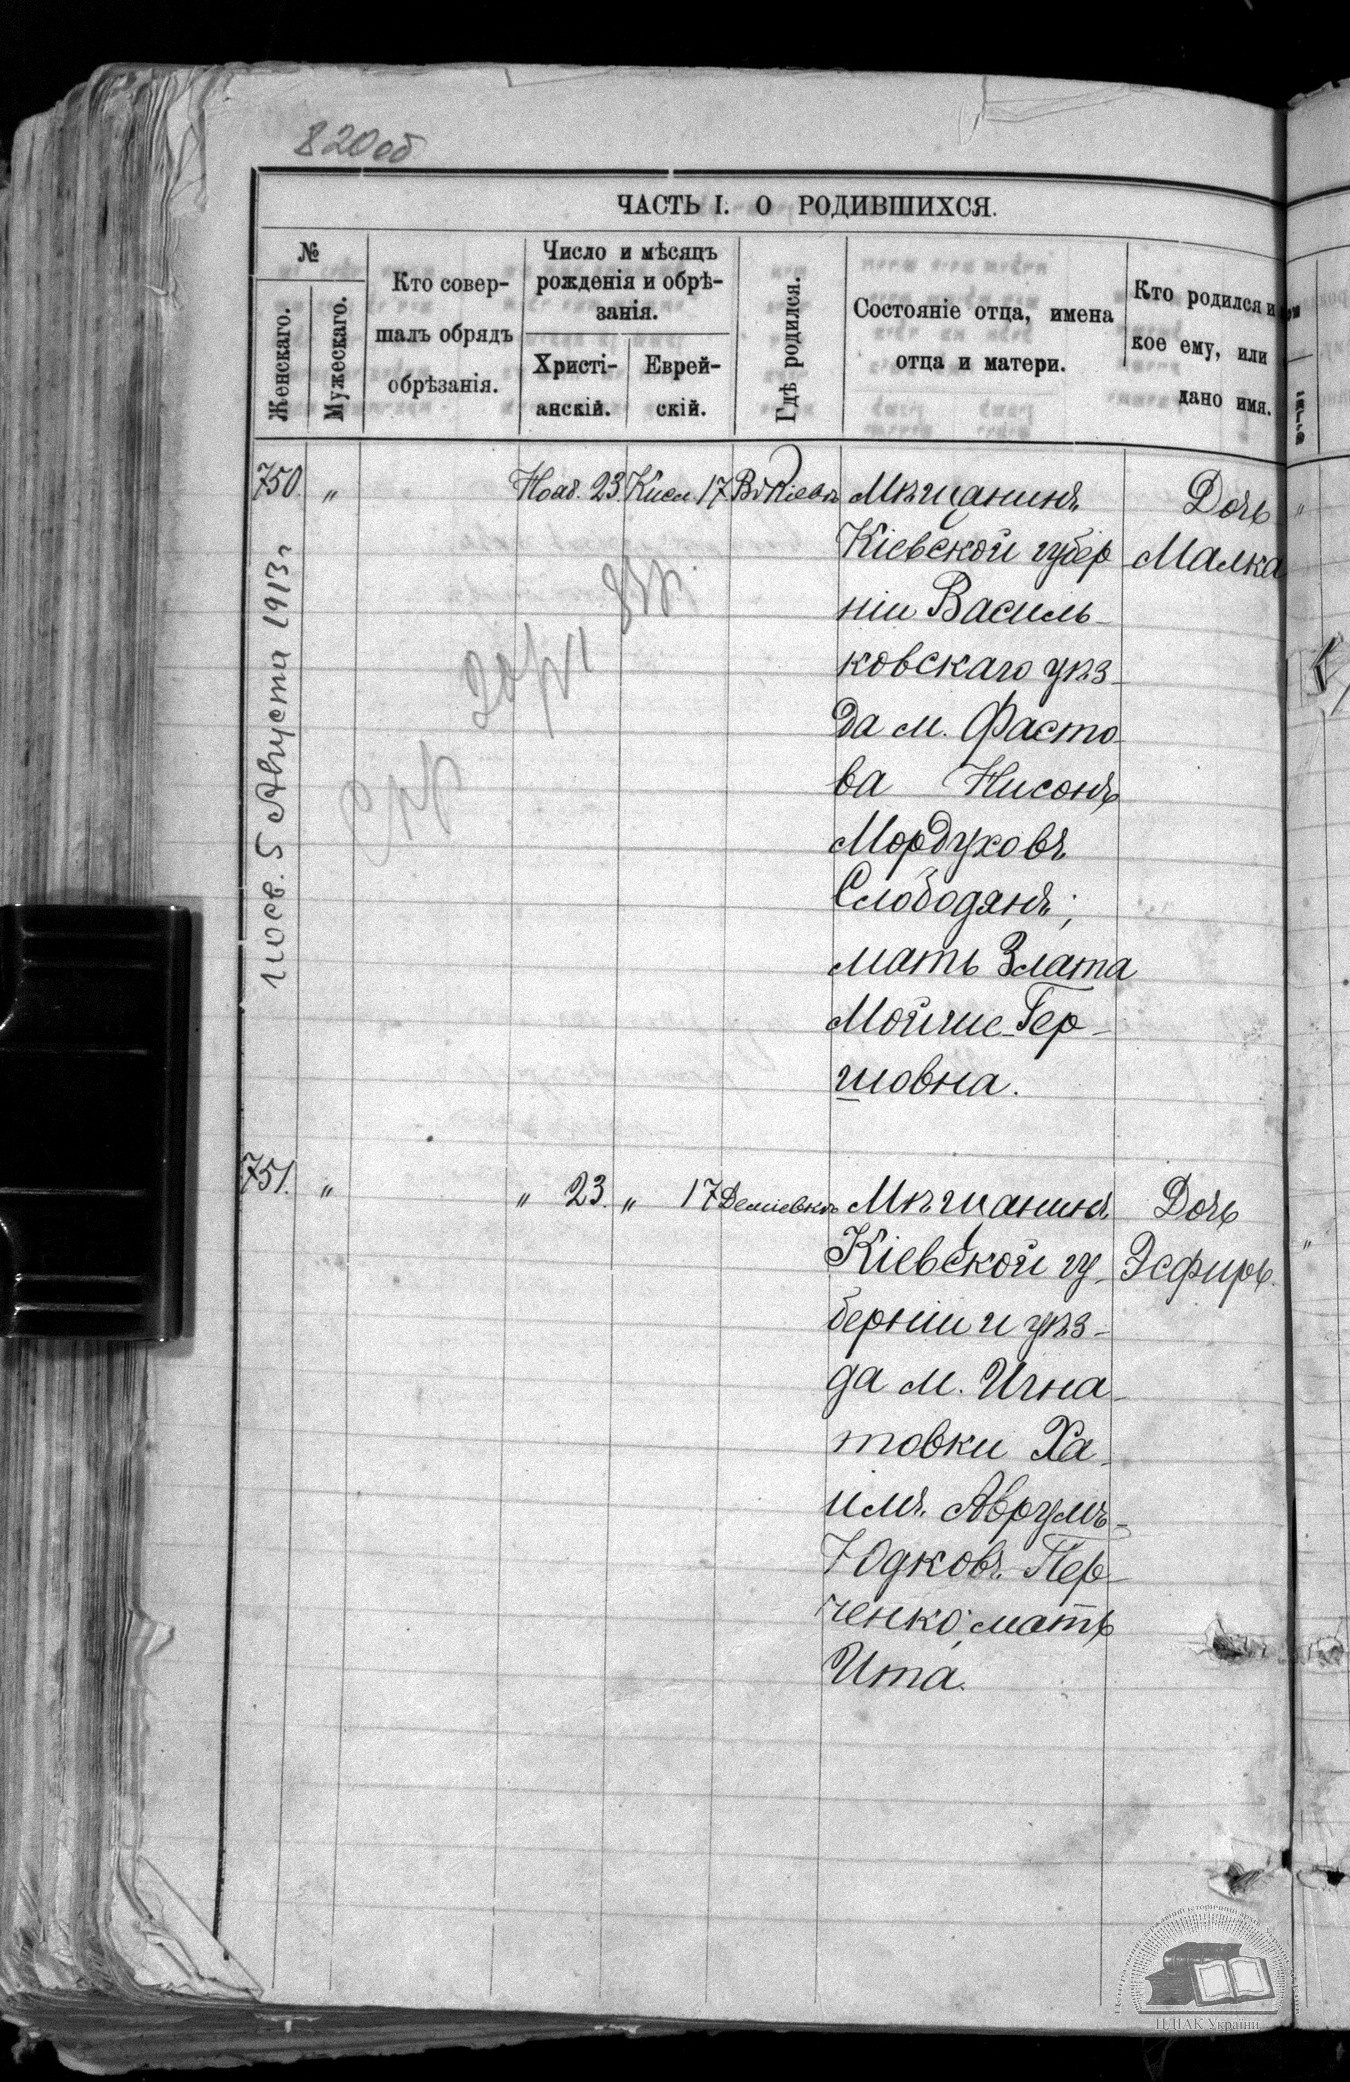 820об
ЧАСТЬ I. О РОДИВШИХСЯ.
№
Женскаго.
Мужескаго.
Кто совер-
шалъ обрядъ
обрѣзанія.
Число и мѣсяцъ
рожденія и обрѣ-
занія.
Христі-
анскій.
Еврей-
скій.
Гдѣ родился.
Состояніе отца, имена
отца и матери.
Кто родился и
кое ему, или
дано имя.
750. „ Нояб. 23. Кисл. 17 Въ Кіевѣ Мѣщанинъ Дочь „
Кіевской губер Малка
ніи Василь-
ковскаго уѣз-
да м. Фасто-
ва Нисонъ
Мордуховъ
Слободянъ;
мать Злата
Мойше-Гер-
шовна.
5 Августа 1913г
751. „ „ 23. „ 17 Деміевкѣ Мѣщанинъ Дочь
Кіевской гу- Эсфирь. „
берніи и уѣз-
да м. Игна-
товки Ха-
имъ Аврумъ-
Юдковъ Пер-
ченко; мать
Ита.
ЦДІАК України